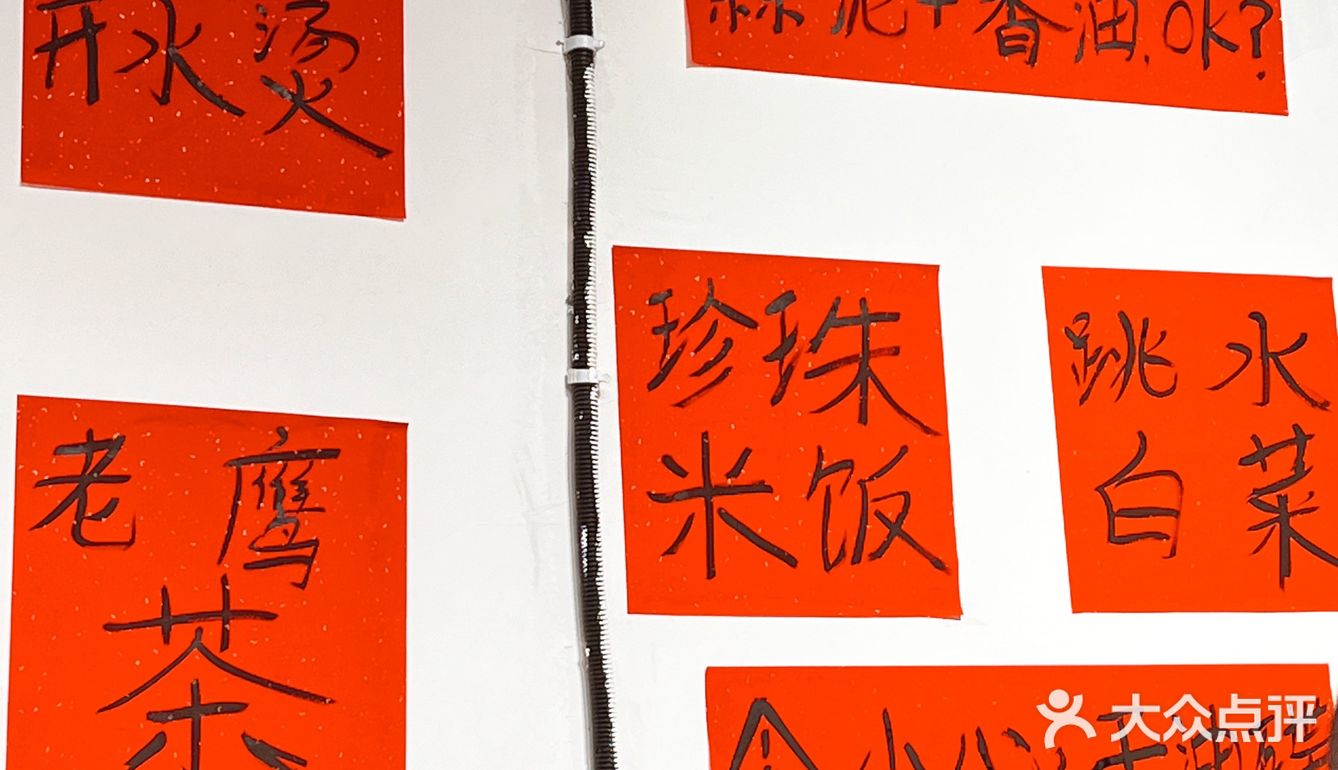 开水烫
蒜泥+香油,OK?
珍珠
米饭
跳水
白菜
老鹰
茶
大众点评